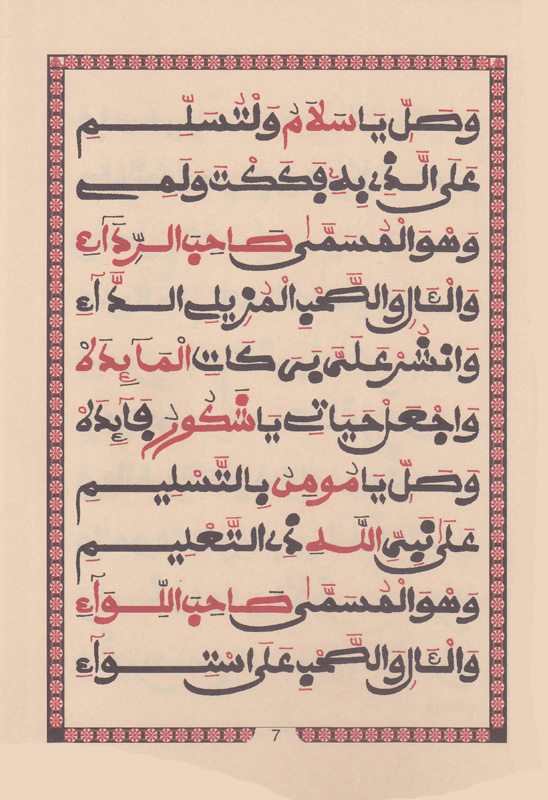 وَصَلِّ يَا سَلَامُ وَلْتُسَلِّمِ
عَلَى الَّذِے بِهِ فَكَكْتَ
وَهْوَ الْمُسَمَّى صَاحِبَ الرِّدَآءِ
وَالْآلِ وَالصَّحْبِ الْمُزِيلِے الدَّآءِ
وَانْشُرْ عَلَىَّ بَرَكَاتِ الْمَآئِدَهْ
وَاجْعَلْ حَيَاتِے يَا شَكُورُ فَآئِدَهْ
وَصَلِّ يَا مُومِنُ بِالتَّسْلِيمِ
عَلَى نَبِيِّ اللَّهِ ذِے التَّعْلِيمِ
وَهْوَ الْمُسَمَّى صَاحِبَ اللِّوَآءِ
وَالْآلِ وَالصَّحْبِ عَلَى اسْتِوَآءِ
7